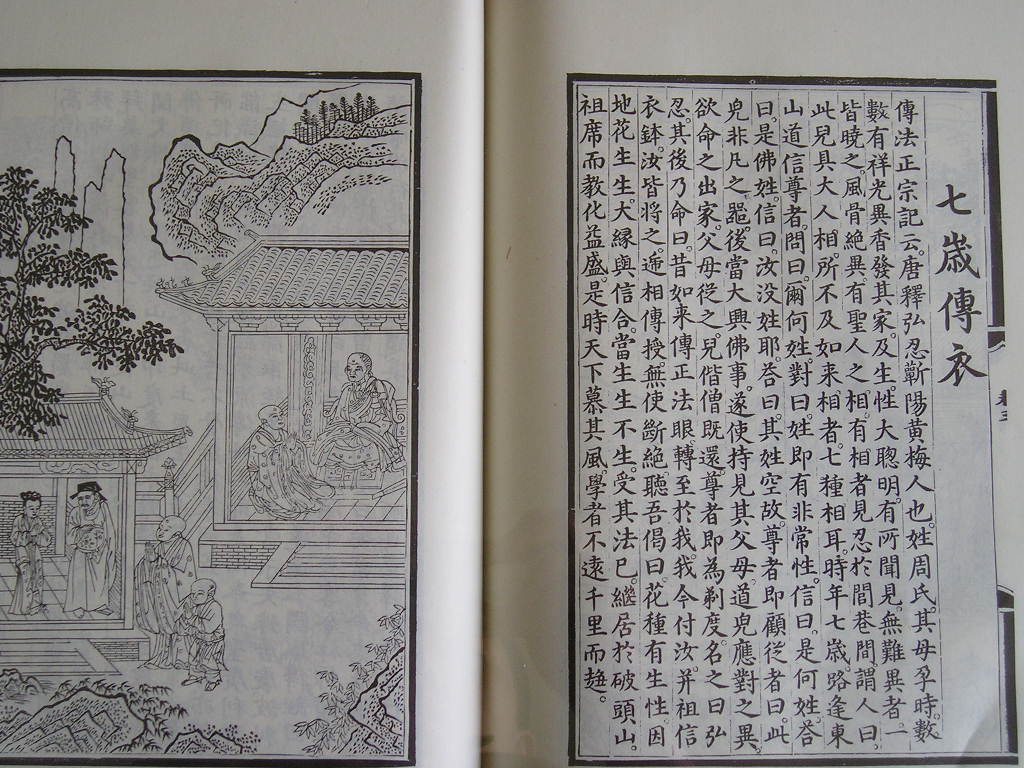 七歲傳衣
傳法正宗記云。唐釋弘忍蘄陽黃梅人也。姓周氏。其母孕時。數
數有祥光異香發其家。及生。性大聰明。有所聞見。無難異者。一
皆曉之。風骨絕異有聖人之相。有相者見忍於閭巷間。謂人曰。
此兒具大人相。所不及如来相者。七種相耳。時年七歲。路逢東
山道信尊者。問曰。爾何姓。對曰。姓即有非常性。信曰。是何姓。荅
曰。是佛姓。信曰。汝沒姓耶。荅曰。其姓空故。尊者即顧從者曰。此
兒非凡之器。後當大興佛事。遂使持見其父母。道兒應對之異。
欲命之出家。父母從之。兒偕僧既還。尊者即為剃度。名之曰弘
忍。其後乃命曰。昔如來傳正法眼。轉至於我。我今付汝。并祖信
衣鉢。汝皆將之。遞相傳授。無使斷絕。聽吾偈曰。花種有生性。因
地花生生。大緣與信合。當生生不生。受其法已。繼居於破頭山。
祖席而教化益盛。是時天下慕其風。學者不遠千里而趍。